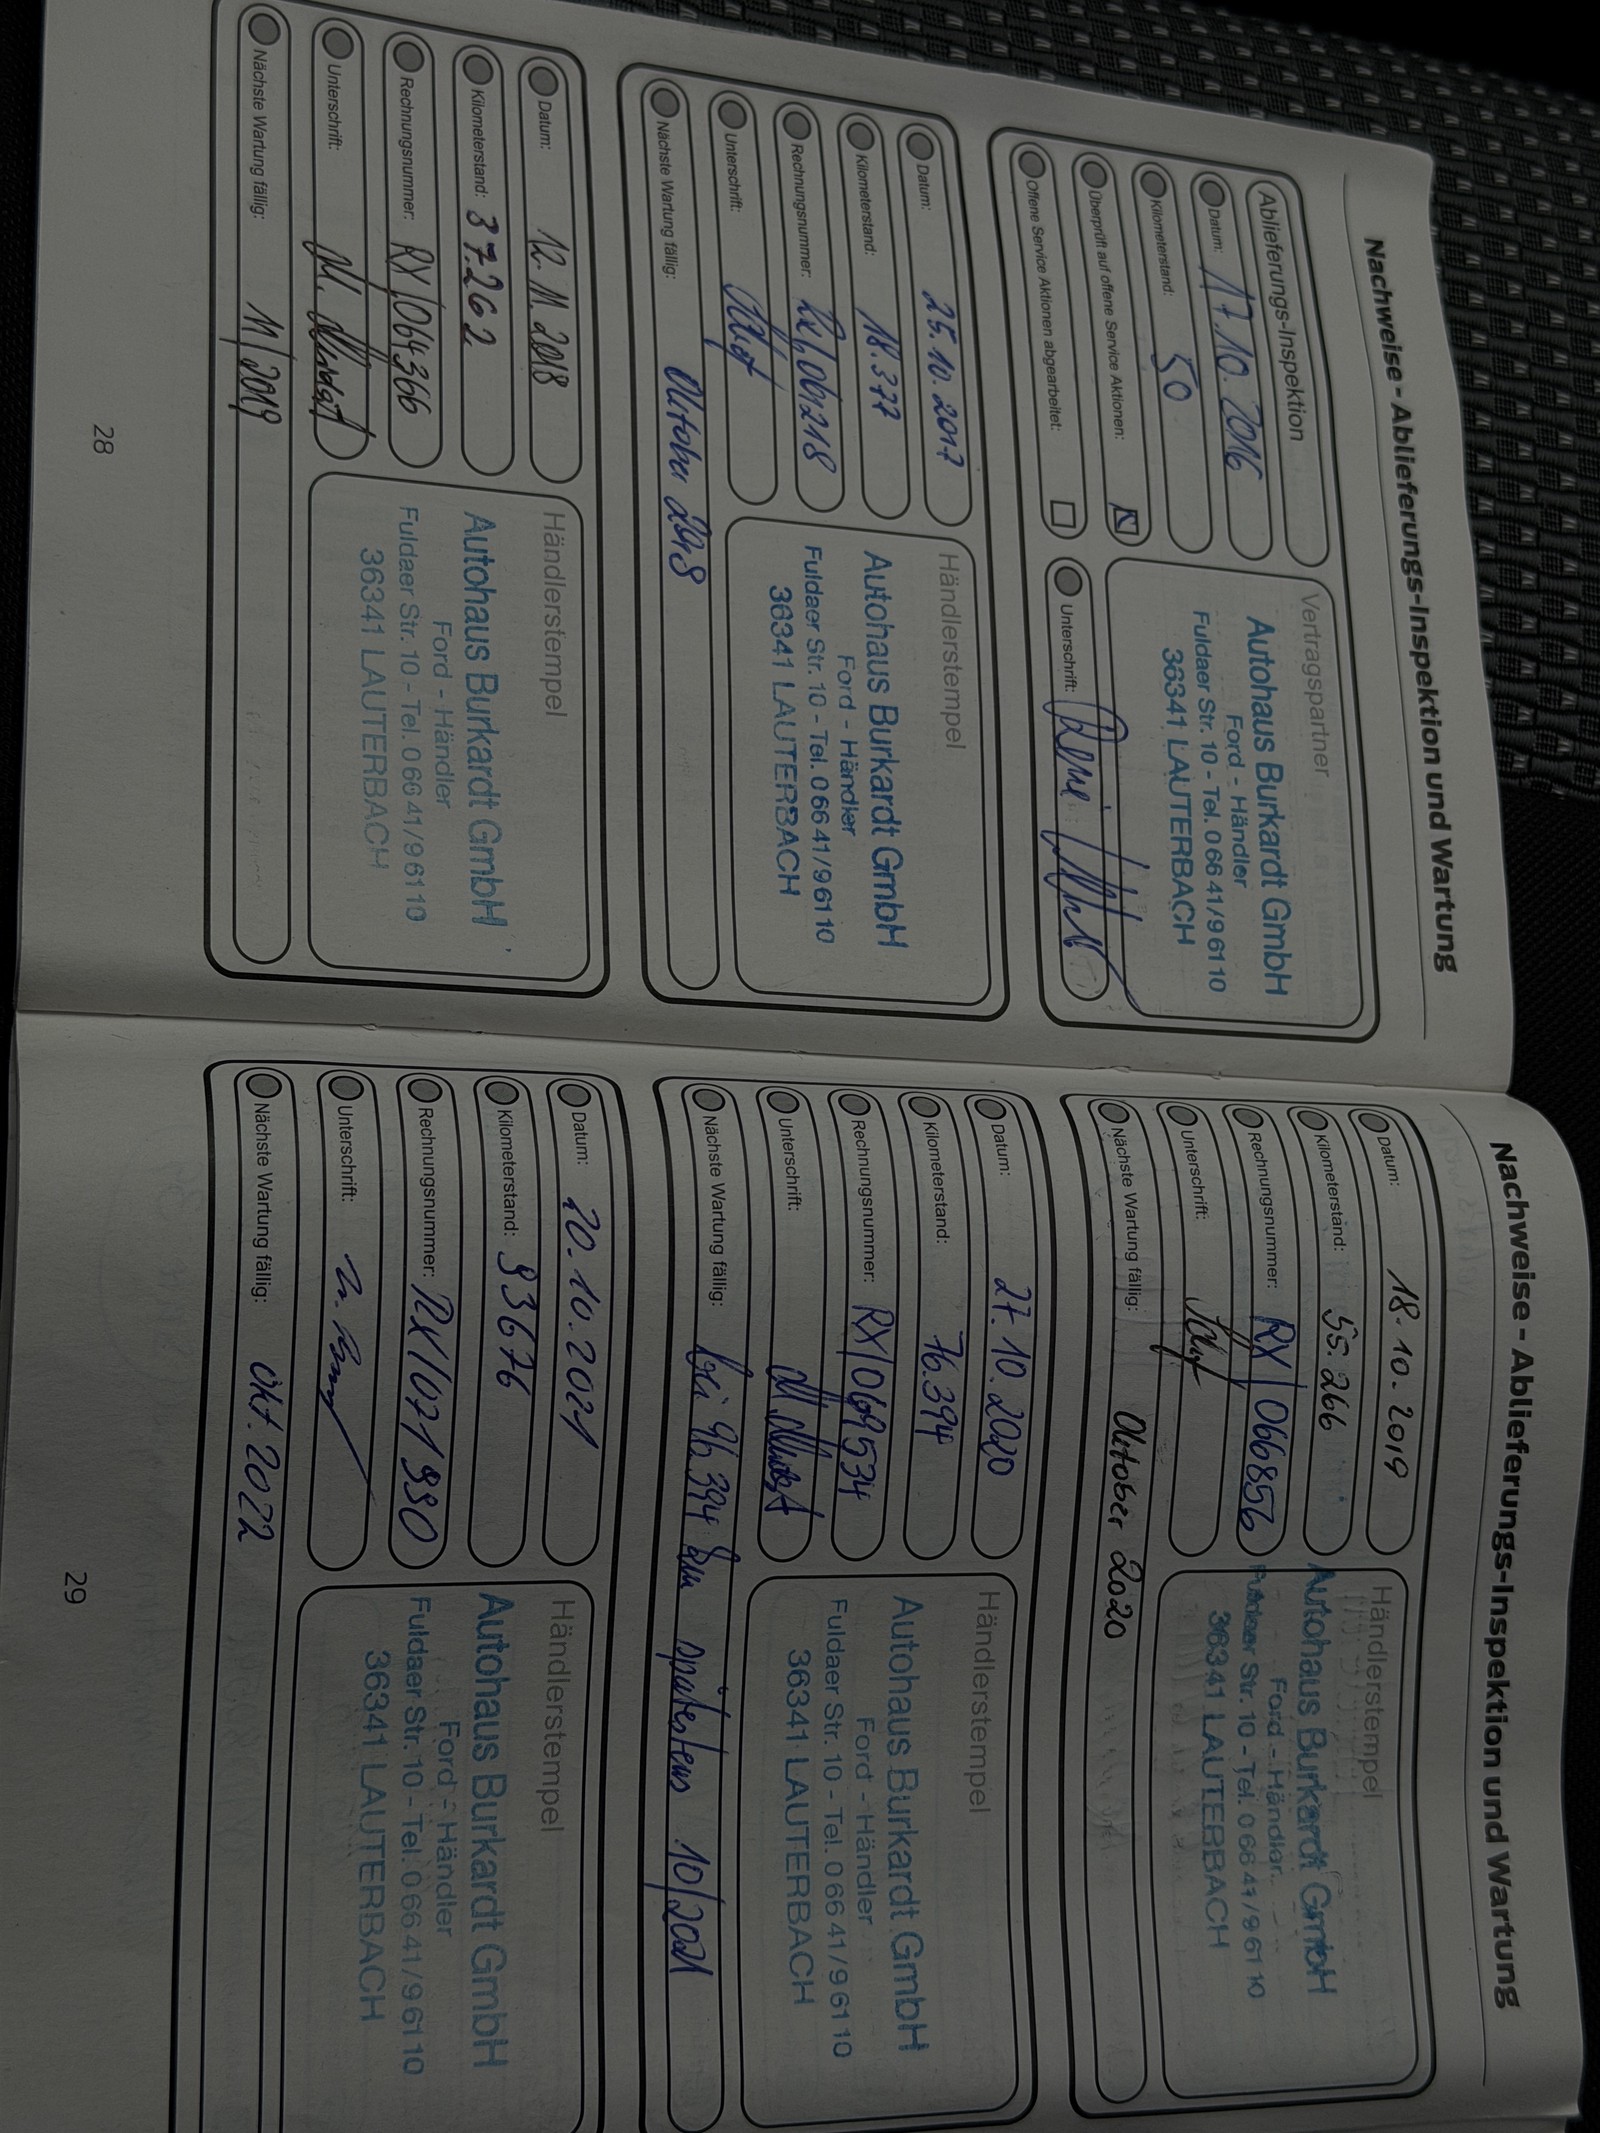 Nachweise - Ablieferungs-Inspektion und Wartung
Ablieferungs-Inspektion
Datum: 17.10.2016
Kilometerstand: 50
Überprüft auf offene Service Aktionen:
Offene Service Aktionen abgearbeitet:
Vertragspartner
Autohaus Burkardt GmbH
Ford - Händler
Fuldaer Str. 10 - Tel. 0 66 41/9 61 10
36341 LAUTERBACH
Unterschrift:
Datum: 25.10.2017
Kilometerstand: 18.377
Rechnungsnummer: RX/061218
Unterschrift:
Nächste Wartung fällig: Oktober 2018
Händlerstempel
Autohaus Burkardt GmbH
Ford - Händler
Fuldaer Str. 10 - Tel. 0 66 41/9 61 10
36341 LAUTERBACH
Datum: 12.11.2018
Kilometerstand: 37.262
Rechnungsnummer: RX/064366
Unterschrift:
Nächste Wartung fällig: 11/2019
Händlerstempel
Autohaus Burkardt GmbH
Ford - Händler
Fuldaer Str. 10 - Tel. 0 66 41/9 61 10
36341 LAUTERBACH
28
Nachweise - Ablieferungs-Inspektion und Wartung
Datum: 18.10.2019
Kilometerstand: 55.266
Rechnungsnummer: RX/066856
Unterschrift:
Nächste Wartung fällig: Oktober 2020
Händlerstempel
Autohaus Burkardt GmbH
Ford - Händler
Fuldaer Str. 10 - Tel. 0 66 41/9 61 10
36341 LAUTERBACH
Datum: 27.10.2020
Kilometerstand: 76.394
Rechnungsnummer: RX/069534
Unterschrift:
Nächste Wartung fällig: bei 96.394 km spätestens 10/2021
Händlerstempel
Autohaus Burkardt GmbH
Ford - Händler
Fuldaer Str. 10 - Tel. 0 66 41/9 61 10
36341 LAUTERBACH
Datum: 20.10.2021
Kilometerstand: 93676
Rechnungsnummer: RX/071990
Unterschrift:
Nächste Wartung fällig: Okt. 2022
Händlerstempel
Autohaus Burkardt GmbH
Ford - Händler
Fuldaer Str. 10 - Tel. 0 66 41/9 61 10
36341 LAUTERBACH
29